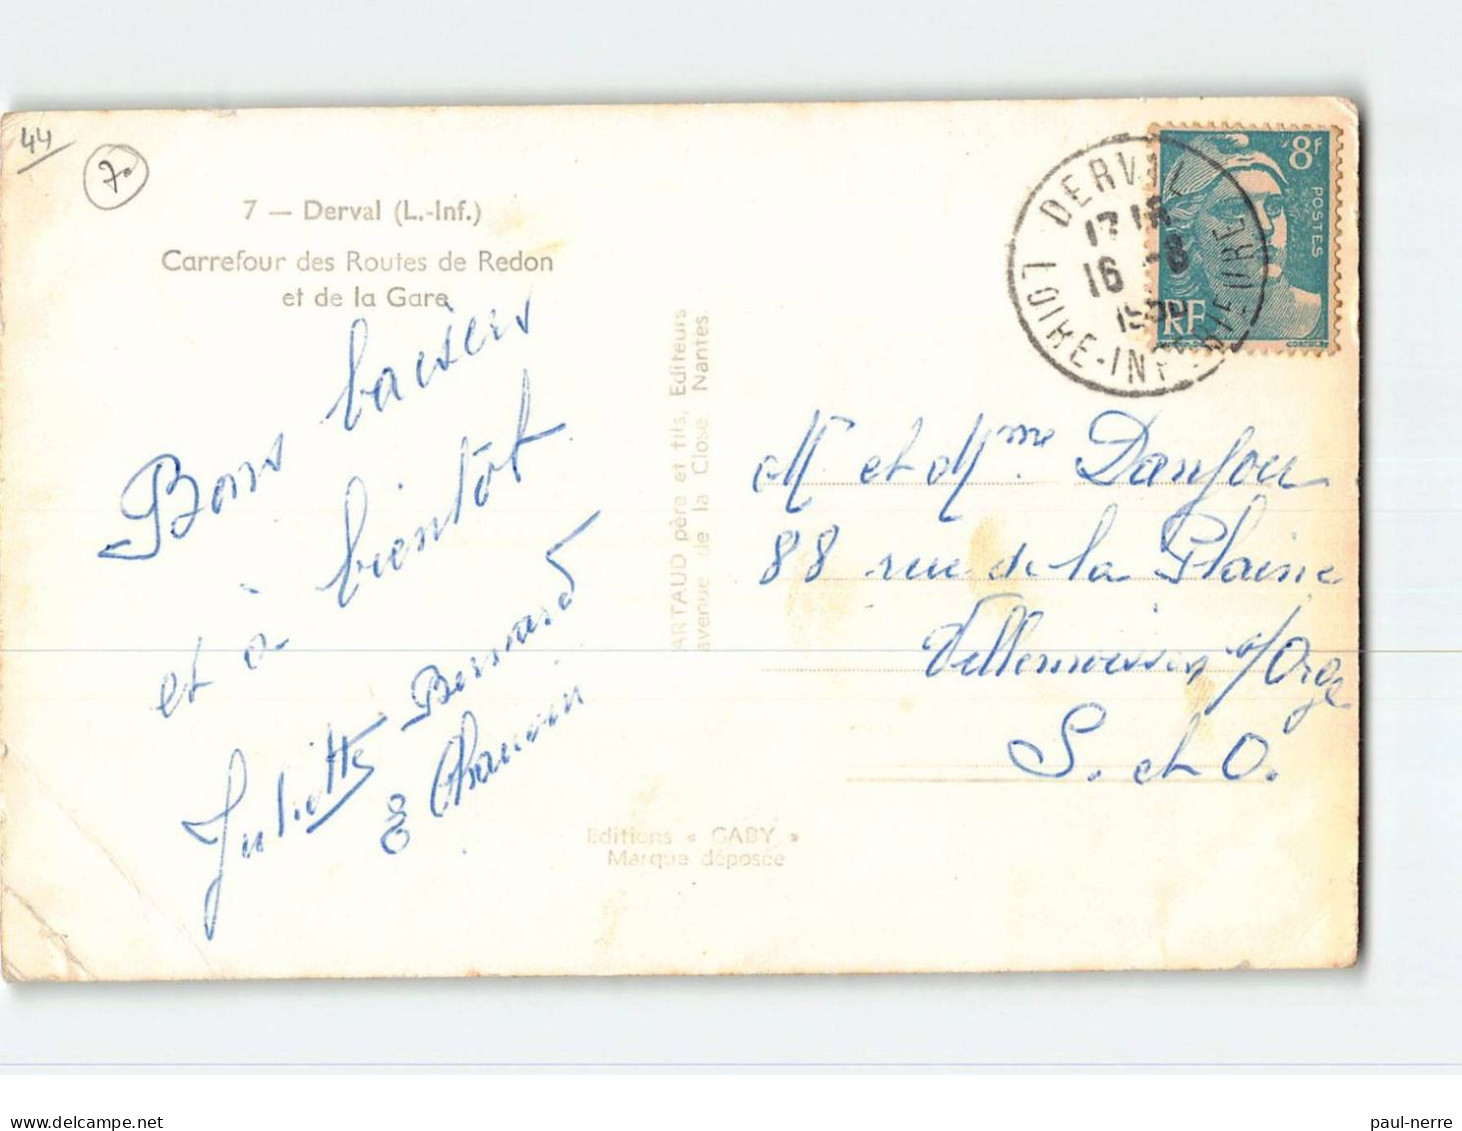 44
7
7 — Derval (L.-Inf.)
Carrefour des Routes de Redon
et de la Gare
Bons baisers
et à bientôt
Juliette Bernard
&
ARTAUD père et fils, Editeurs
avenue de la Close, Nantes.
Editions « GABY »
Marque déposée
DERVAL
16 -8
LOIRE-INFÉRIEURE
8F
POSTES
RF
M et Mme Danjou
88 rue de la Plaine
Villemoisson s/Orge
S. et O.
paul-nerre